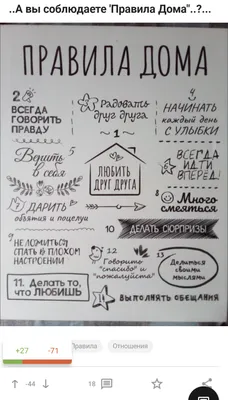 ..А вы соблюдаете 'Правила Дома"..?...
ПРАВИЛА ДОМА
2
ВСЕГДА
ГОВОРИТЬ
ПРАВДУ
3
Радовать
друг друга
4
НАЧИНАТЬ
каждый день
С УЛЫБКИ
1
ЛЮБИТЬ
ДРУГ ДРУГА
5
Верить
в себя
ВСЕГДА
ИДТИ
ВПЕРЕД!
ДАРИТЬ
объятия и поцелуи
8
Много
смеяться
9
НЕ ЛОЖИТЬСЯ
СПАТЬ В ПЛОХОМ
НАСТРОЕНИИ
10 ДЕЛАТЬ СЮРПРИЗЫ
11. Делать то,
что ЛЮБИШЬ
12
Говорить
"спасибо" и
"пожалуйста"
13
Делиться
своими
мыслями
14
ВЫПОЛНЯТЬ ОБЕЩАНИЯ
+27 -71
Правила
Отношения
-44
18